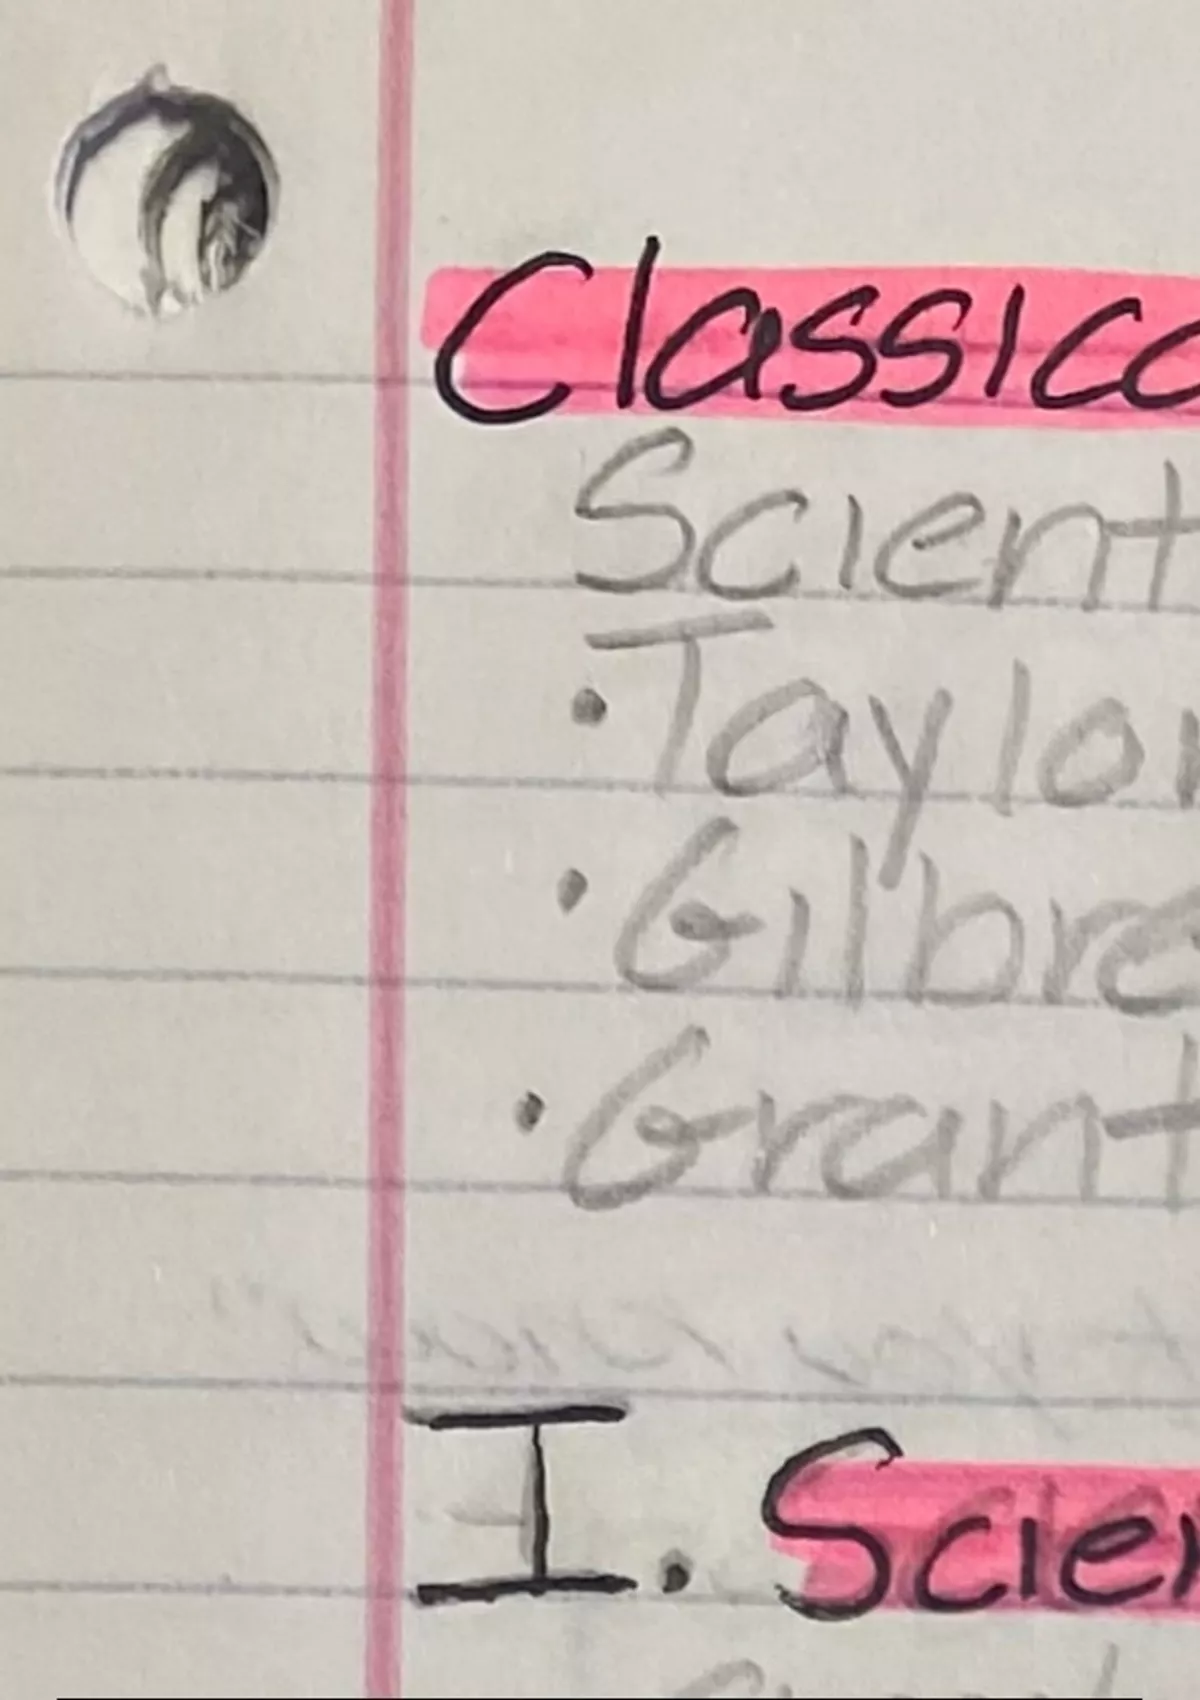 Classica
Scient
·Taylor
·Gilbre
·Grant
I. Scien